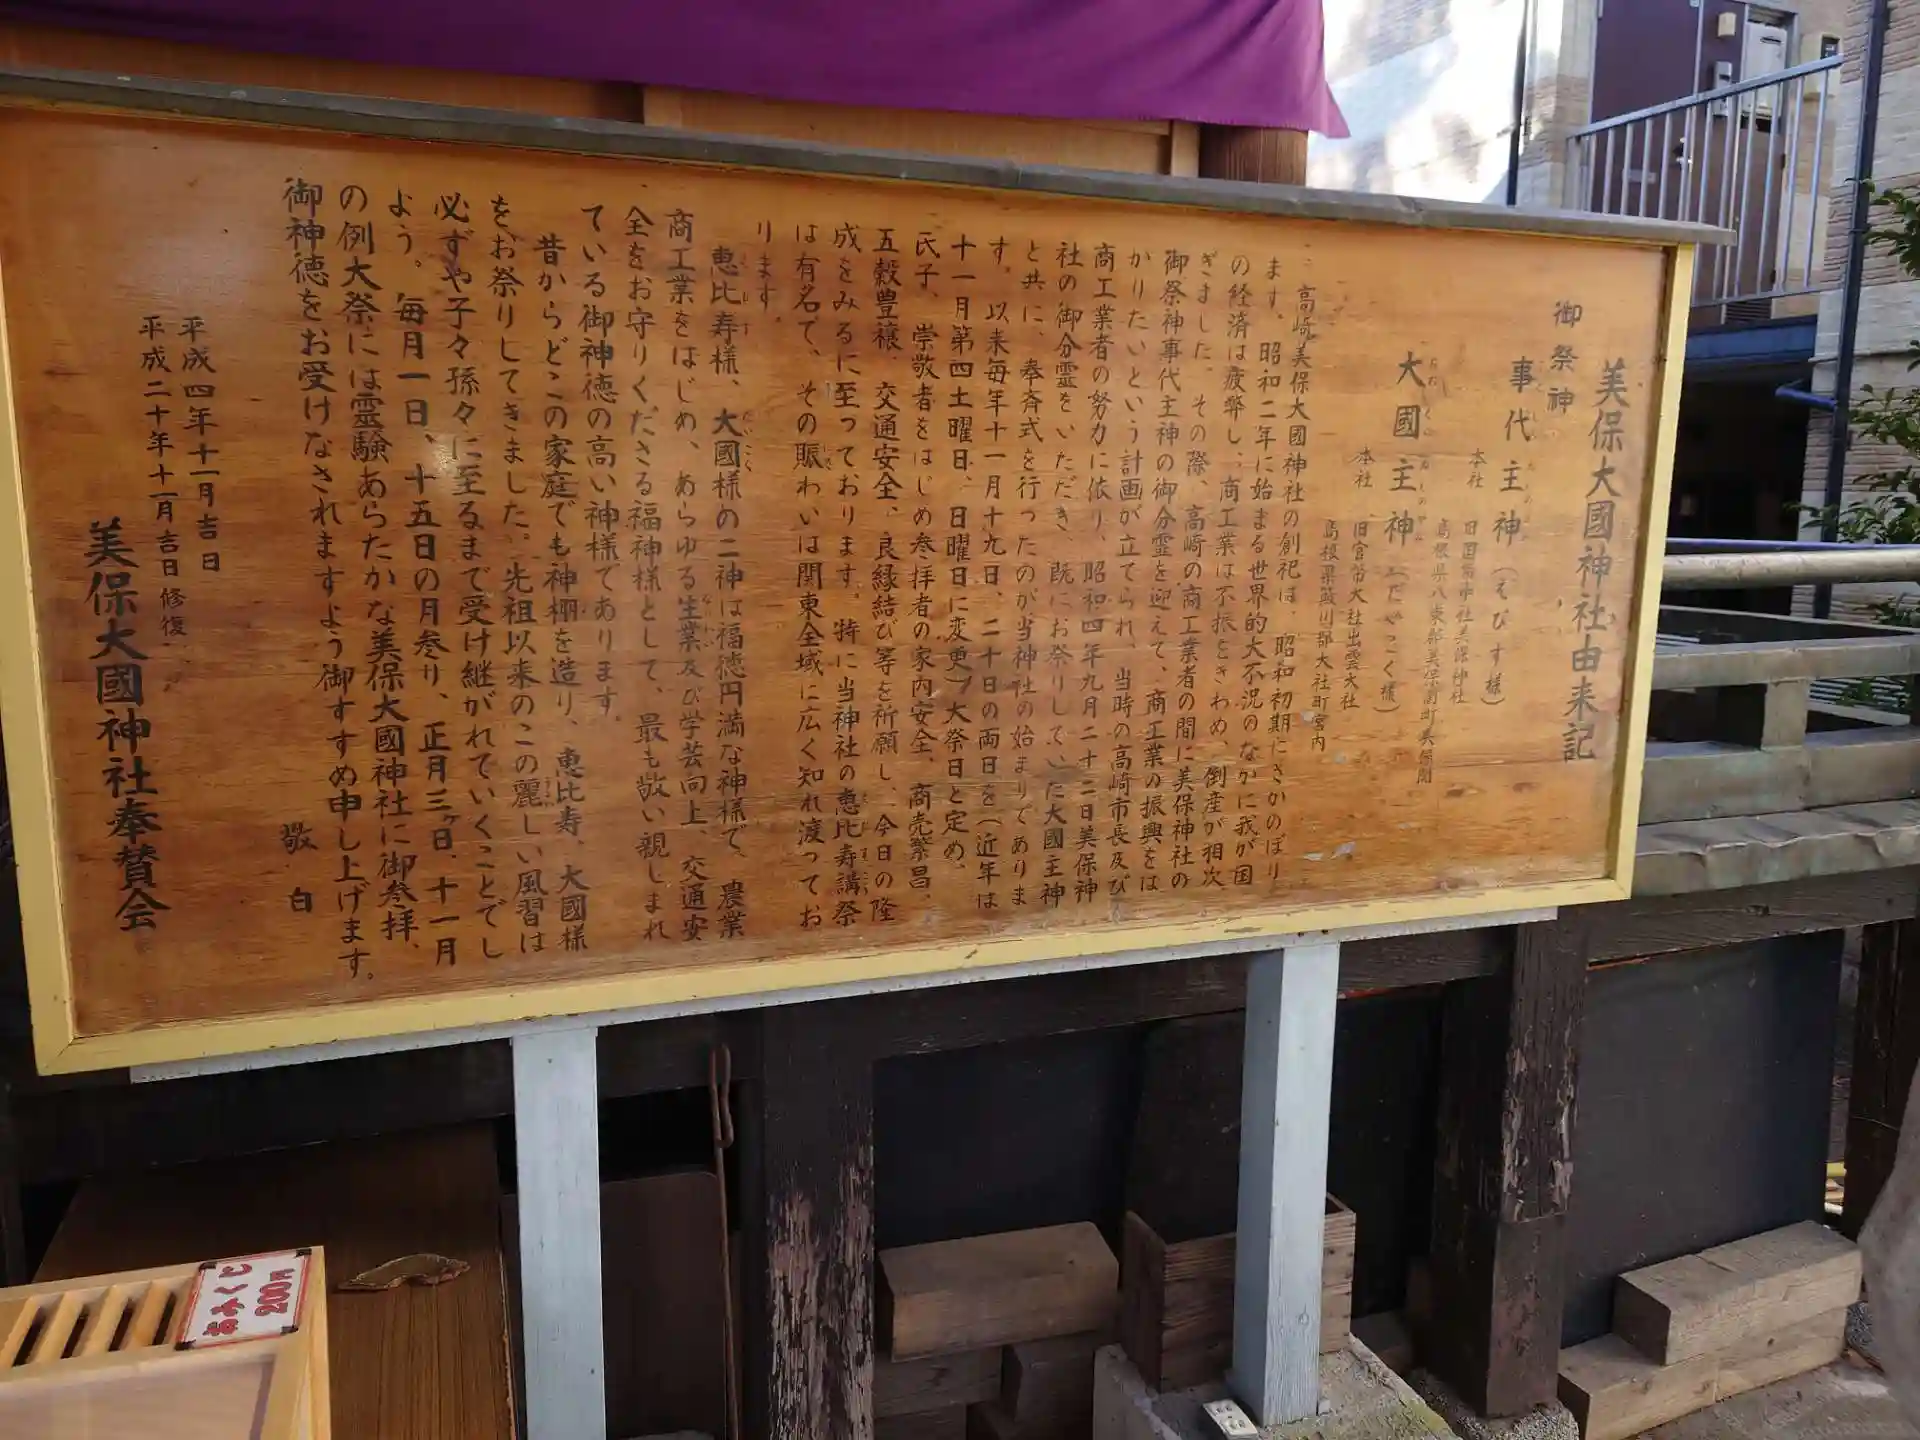 美保大國神社由来記
御祭神
事代主神（えびす様）
本社 旧国幣中社美保神社
島根県八束郡美保関町美保関
大國主神（だいこく様）
本社 旧官幣大社出雲大社
島根県簸川郡大社町宮内
高崎美保大國神社の創祀は、昭和初期にさかのぼり
ます。昭和二年に始まる世界的大不況のなかに我が国
の経済は疲弊し、商工業は不振をきわめ、倒産が相次
ぎました。その際、高崎の商工業者の間に美保神社の
御祭神事代主神の御分霊を迎えて、商工業の振興をは
かりたいという計画が立てられ、当時の高崎市長及び
商工業者の努力に依り、昭和四年九月二十二日美保神
社の御分霊をいただき、既にお祭りしていた大國主神
と共に、奉斉式を行ったのが当神社の始まりでありま
す。以来毎年十一月十九日、二十日の両日を（近年は
十一月第四土曜日、日曜日に変更）大祭日と定め、
氏子、崇敬者をはじめ参拝者の家内安全、商売繁昌、
五穀豊穣 交通安全、良縁結び等を祈願し、今日の隆
成をみるに至っております。特に当神社の恵比寿講祭
は有名で、その賑わいは関東全域に広く知れ渡ってお
ります。
恵比寿様、大國様の二神は福徳円満な神様で、農業
商工業をはじめ、あらゆる生業及び学芸向上、交通安
全をお守りくださる福神様として、最も敬い親しまれ
ている御神徳の高い神様であります。
昔からどこの家庭でも神棚を造り、恵比寿、大國様
をお祭りしてきました。先祖以来のこの麗しい風習は
必ずや子々孫々に至るまで受け継がれていくことでし
よう。毎月一日、十五日の月参り、正月三ヶ日、十一月
の例大祭には霊験あらたかな美保大國神社に御参拝、
御神徳をお受けなされますよう御すすめ申し上げます。
敬白
平成四年十一月吉日
平成二十年十一月吉日修復
美保大國神社奉賛会
おみくじ
200円